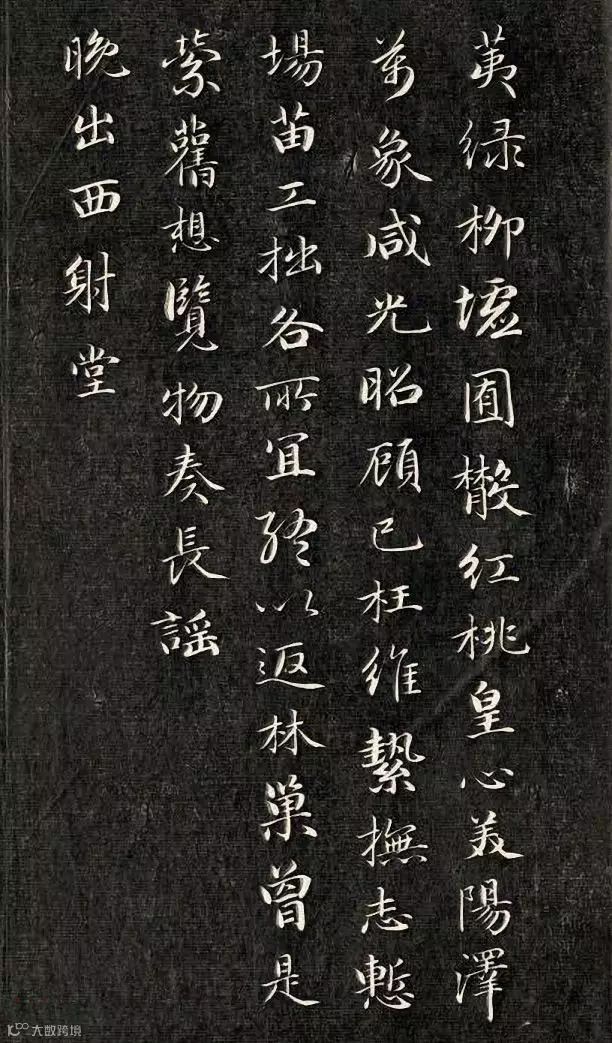 荑绿柳墟囿散红桃皇心美陽澤
萬象咸光昭顧已枉維縶撫志慙
場苗工拙各所宜終以返林巢曾是
縈舊想覽物奏長謡
晚出西射堂
大数跨境